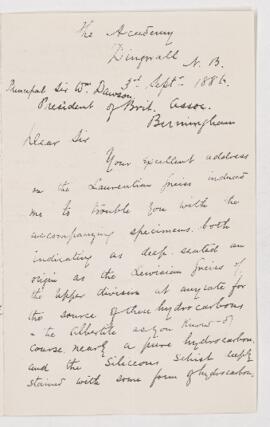 The Academy
Dingwall N. B.
3rd Septr. 1886.
Principal Sir Wm. Dawson
President of Brit. Assoc.
Birmingham
Dear Sir
Your excellent address
on the Laurentian Gneiss induced
me to trouble you with the
accompanying specimens both
indicating as deep seated an
origin as the Lewisian Gneiss of
the upper division at any rate for
the source of these hydrocarbons
- the Albertite as you know - of
course nearly a pure hydrocarbon,
and the Siliceous Schist deeply
stained with some form of hydrocarbon.